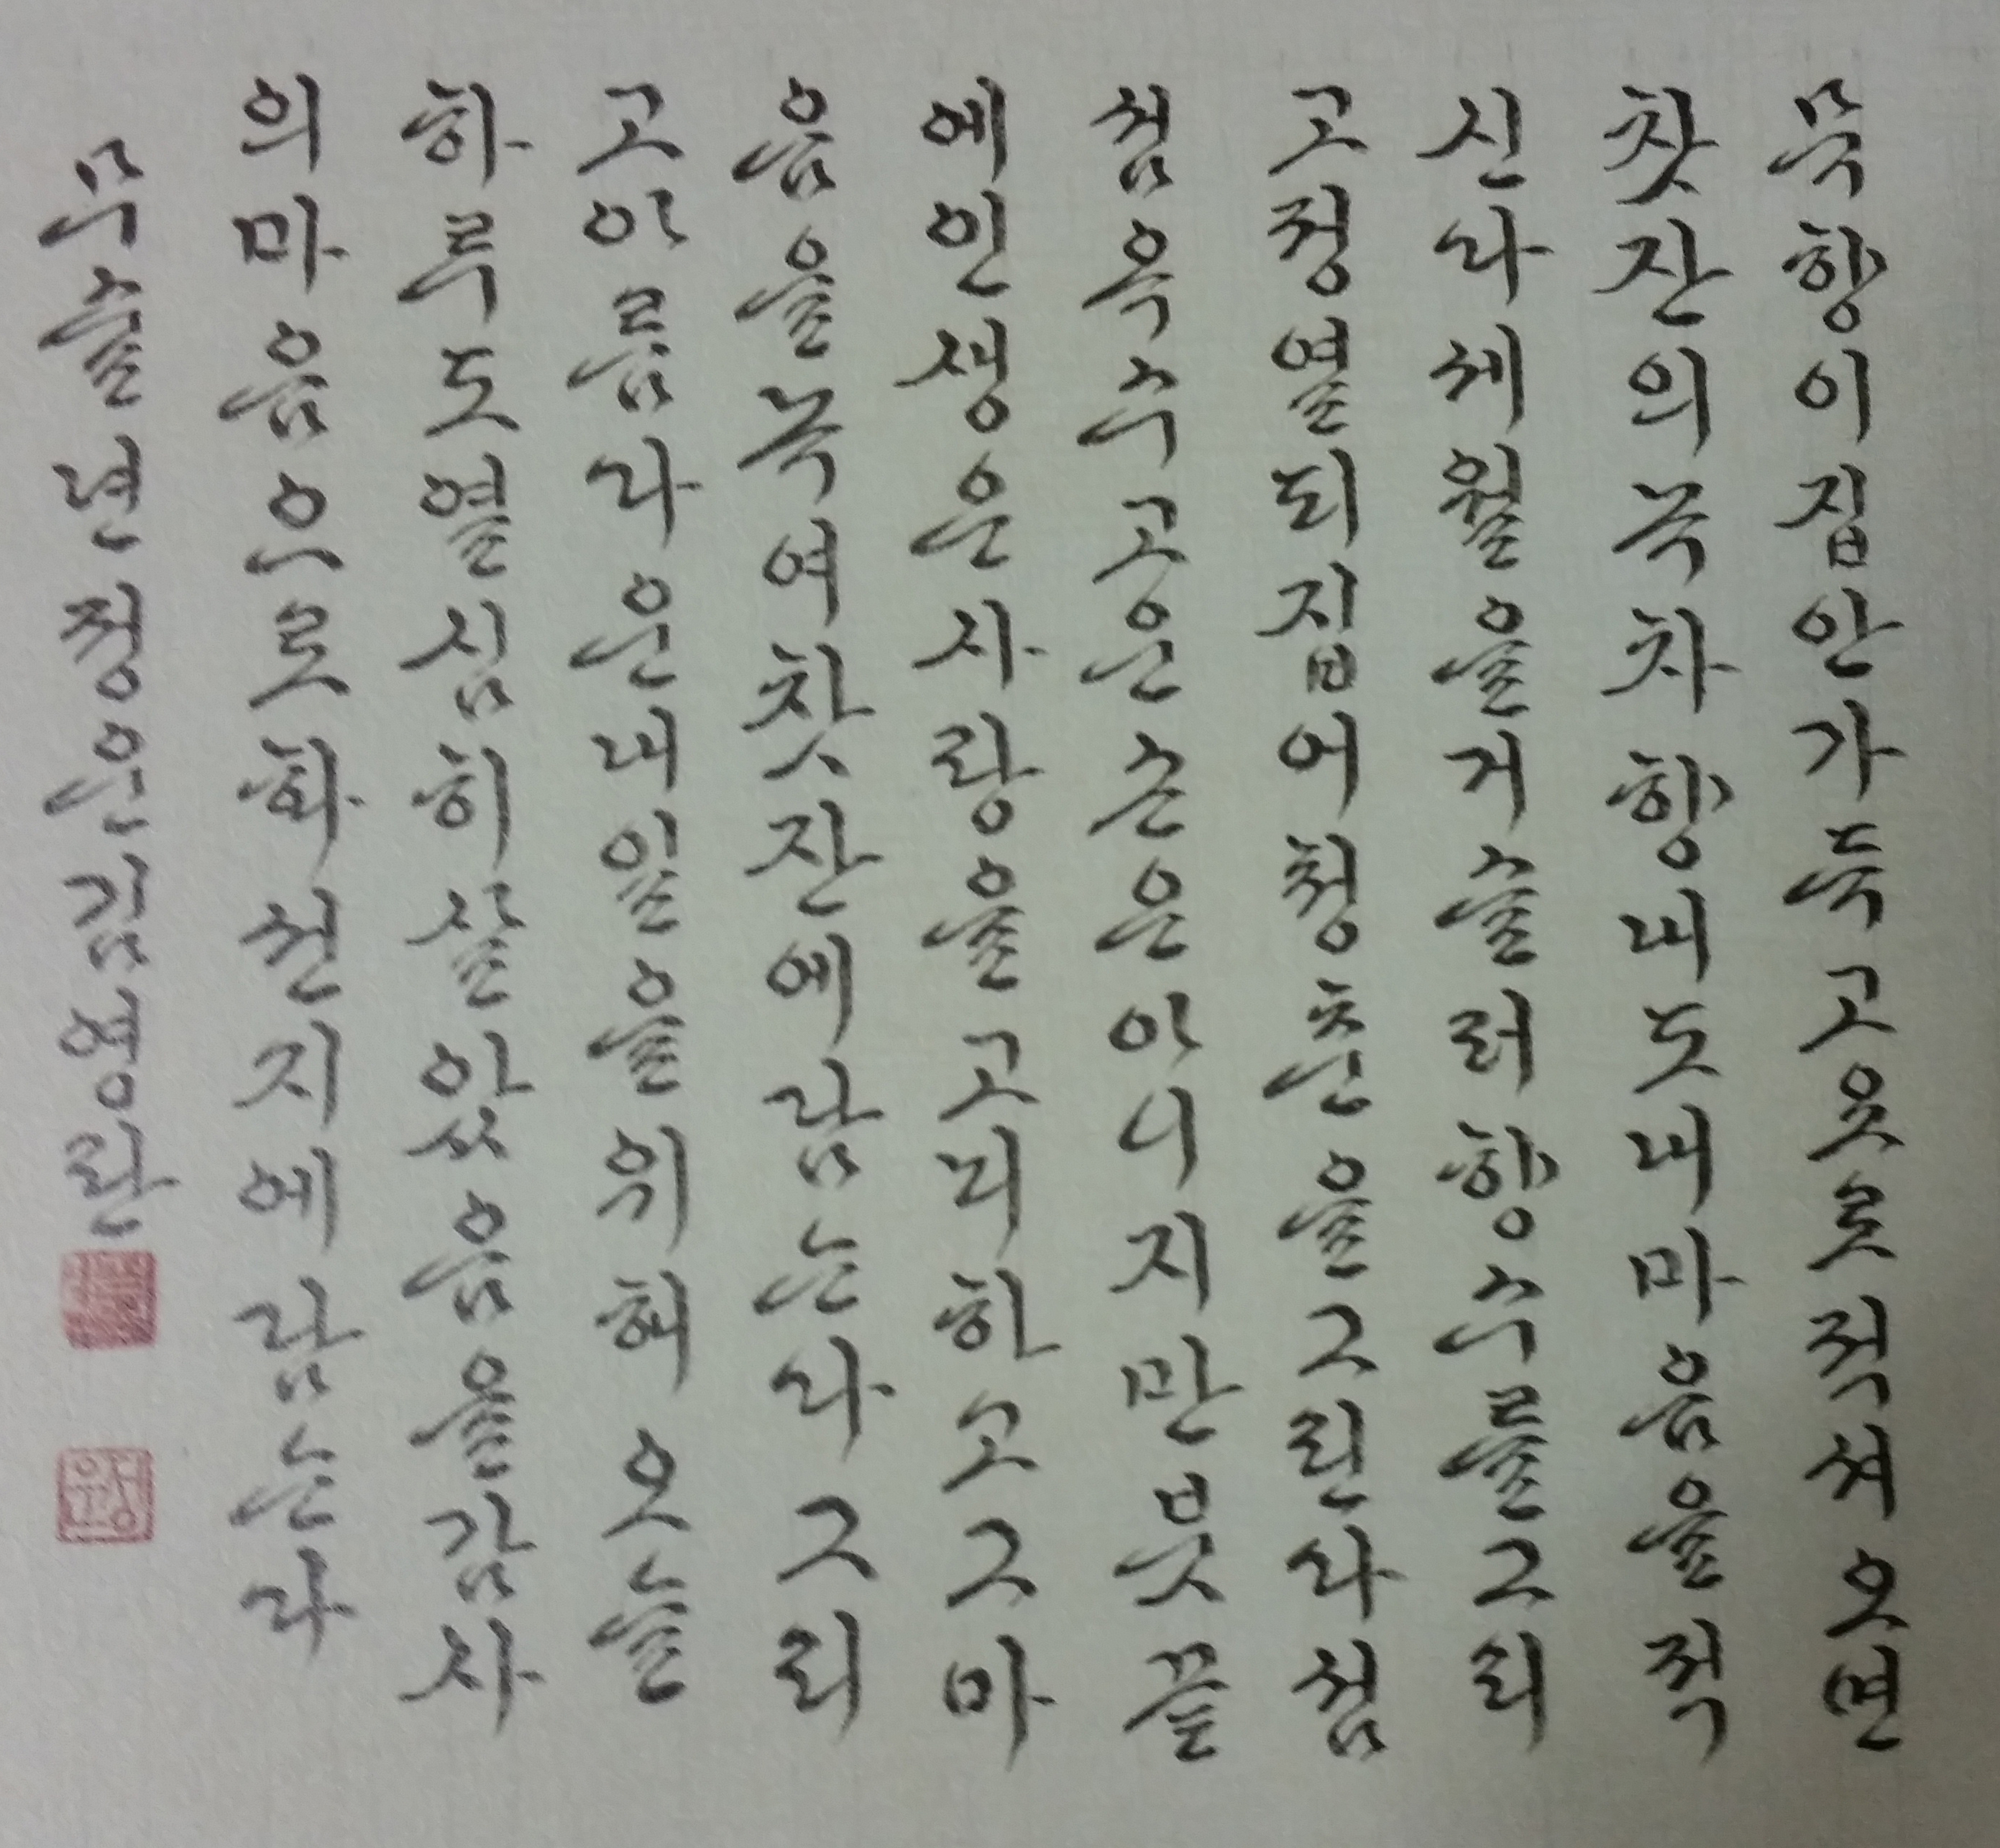 묵향이집안가득고요로적셔오면
찻잔의녹차향내도내마음을적
신다세월을거슬러향수를그리
고정열되집어청춘을그린다섬
섬옥수고운손은아니지만붓끝
에인생은사랑을고뇌하고그마
음을녹여찻잔에담는다그리
고아름다운내일을위해오늘
하루도열심히살았음을감사
의마음으로화선지에담는다
무술년정은김영란
정은